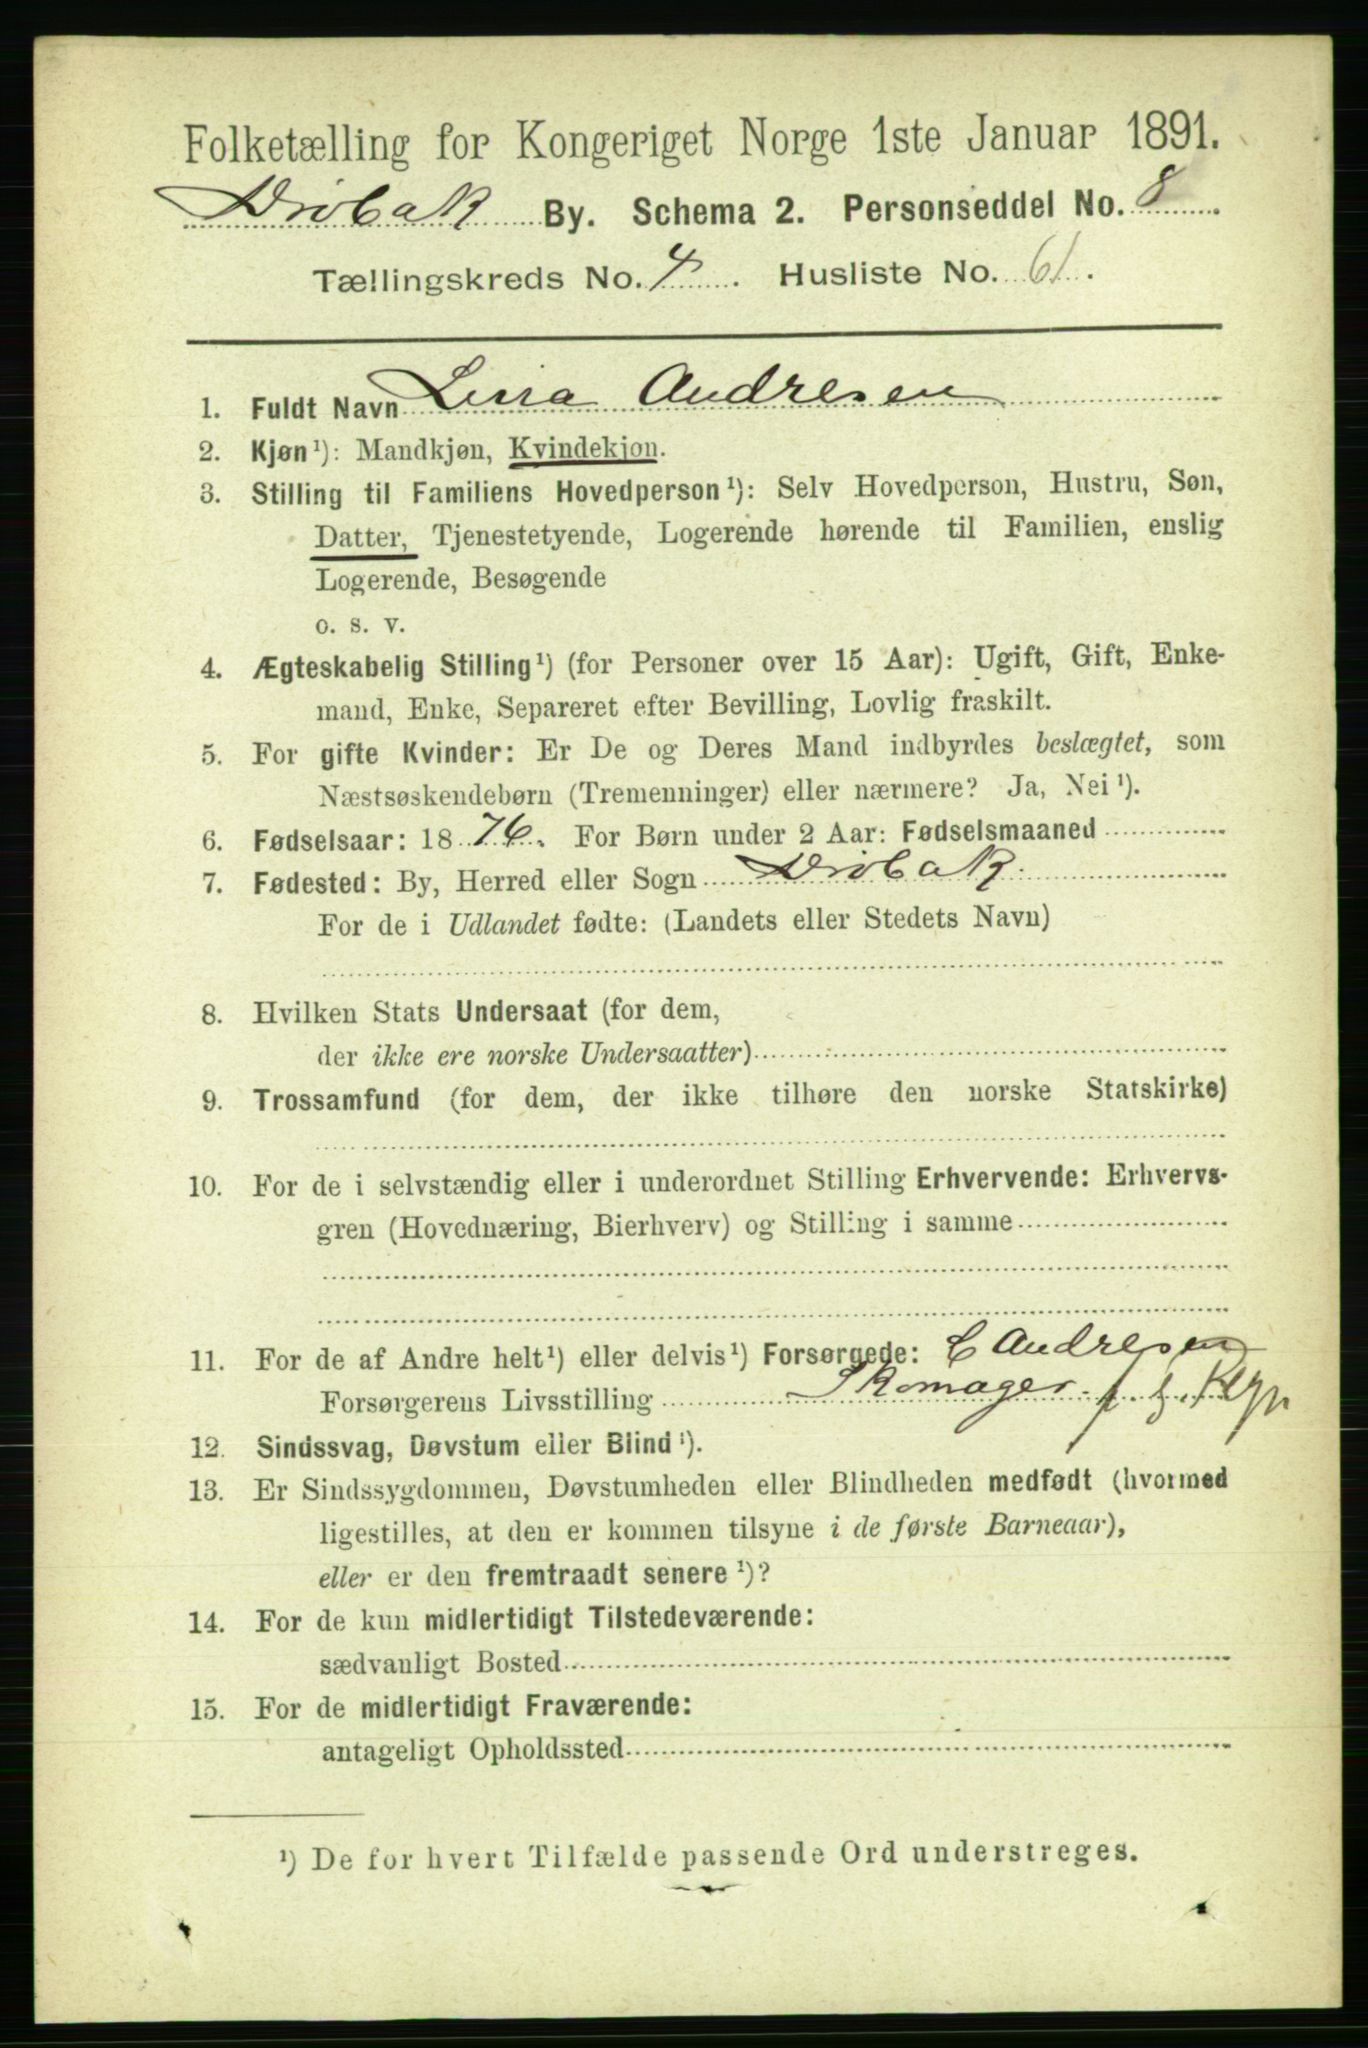 Folketælling for Kongeriget Norge 1ste Januar 1891.
Drøbak By. Schema 2. Personseddel No. 8
Tællingskreds No. 4. Husliste No. 61.
1. Fuldt Navn Lina Andresen
2. Kjøn¹): Mandkjøn, Kvindekjøn.
3. Stilling til Familiens Hovedperson¹): Selv Hovedperson, Hustru, Søn,
Datter, Tjenestetyende, Logerende hørende til Familien, enslig
Logerende, Besøgende
o. s. v.
4. Ægteskabelig Stilling¹) (for Personer over 15 Aar): Ugift, Gift, Enke-
mand, Enke, Separeret efter Bevilling, Lovlig fraskilt.
5. For gifte Kvinder: Er De og Deres Mand indbyrdes beslægtet, som
Næstsøskendebørn (Tremenninger) eller nærmere? Ja, Nei¹).
6. Fødselsaar: 1876. For Børn under 2 Aar: Fødselsmaaned
7. Fødested: By, Herred eller Sogn Drøbak.
For de i Udlandet fødte: (Landets eller Stedets Navn)
8. Hvilken Stats Undersaat (for dem,
der ikke ere norske Undersaatter)
9. Trossamfund (for dem, der ikke tilhøre den norske Statskirke)
10. For de i selvstændig eller i underordnet Stilling Erhvervende: Erhvervs-
gren (Hovednæring, Bierhverv) og Stilling i samme
11. For de af Andre helt¹) eller delvis¹) Forsørgede: C Andresen
Forsørgerens Livsstilling Skomager f. e. Regn
12. Sindssvag, Døvstum eller Blind¹).
13. Er Sindssygdommen, Døvstumheden eller Blindheden medfødt (hvormed
ligestilles, at den er kommen tilsyne i de første Barneaar),
eller er den fremtraadt senere¹)?
14. For de kun midlertidigt Tilstedeværende:
sædvanligt Bosted
15. For de midlertidigt Fraværende:
antageligt Opholdssted
¹) De for hvert Tilfælde passende Ord understreges.